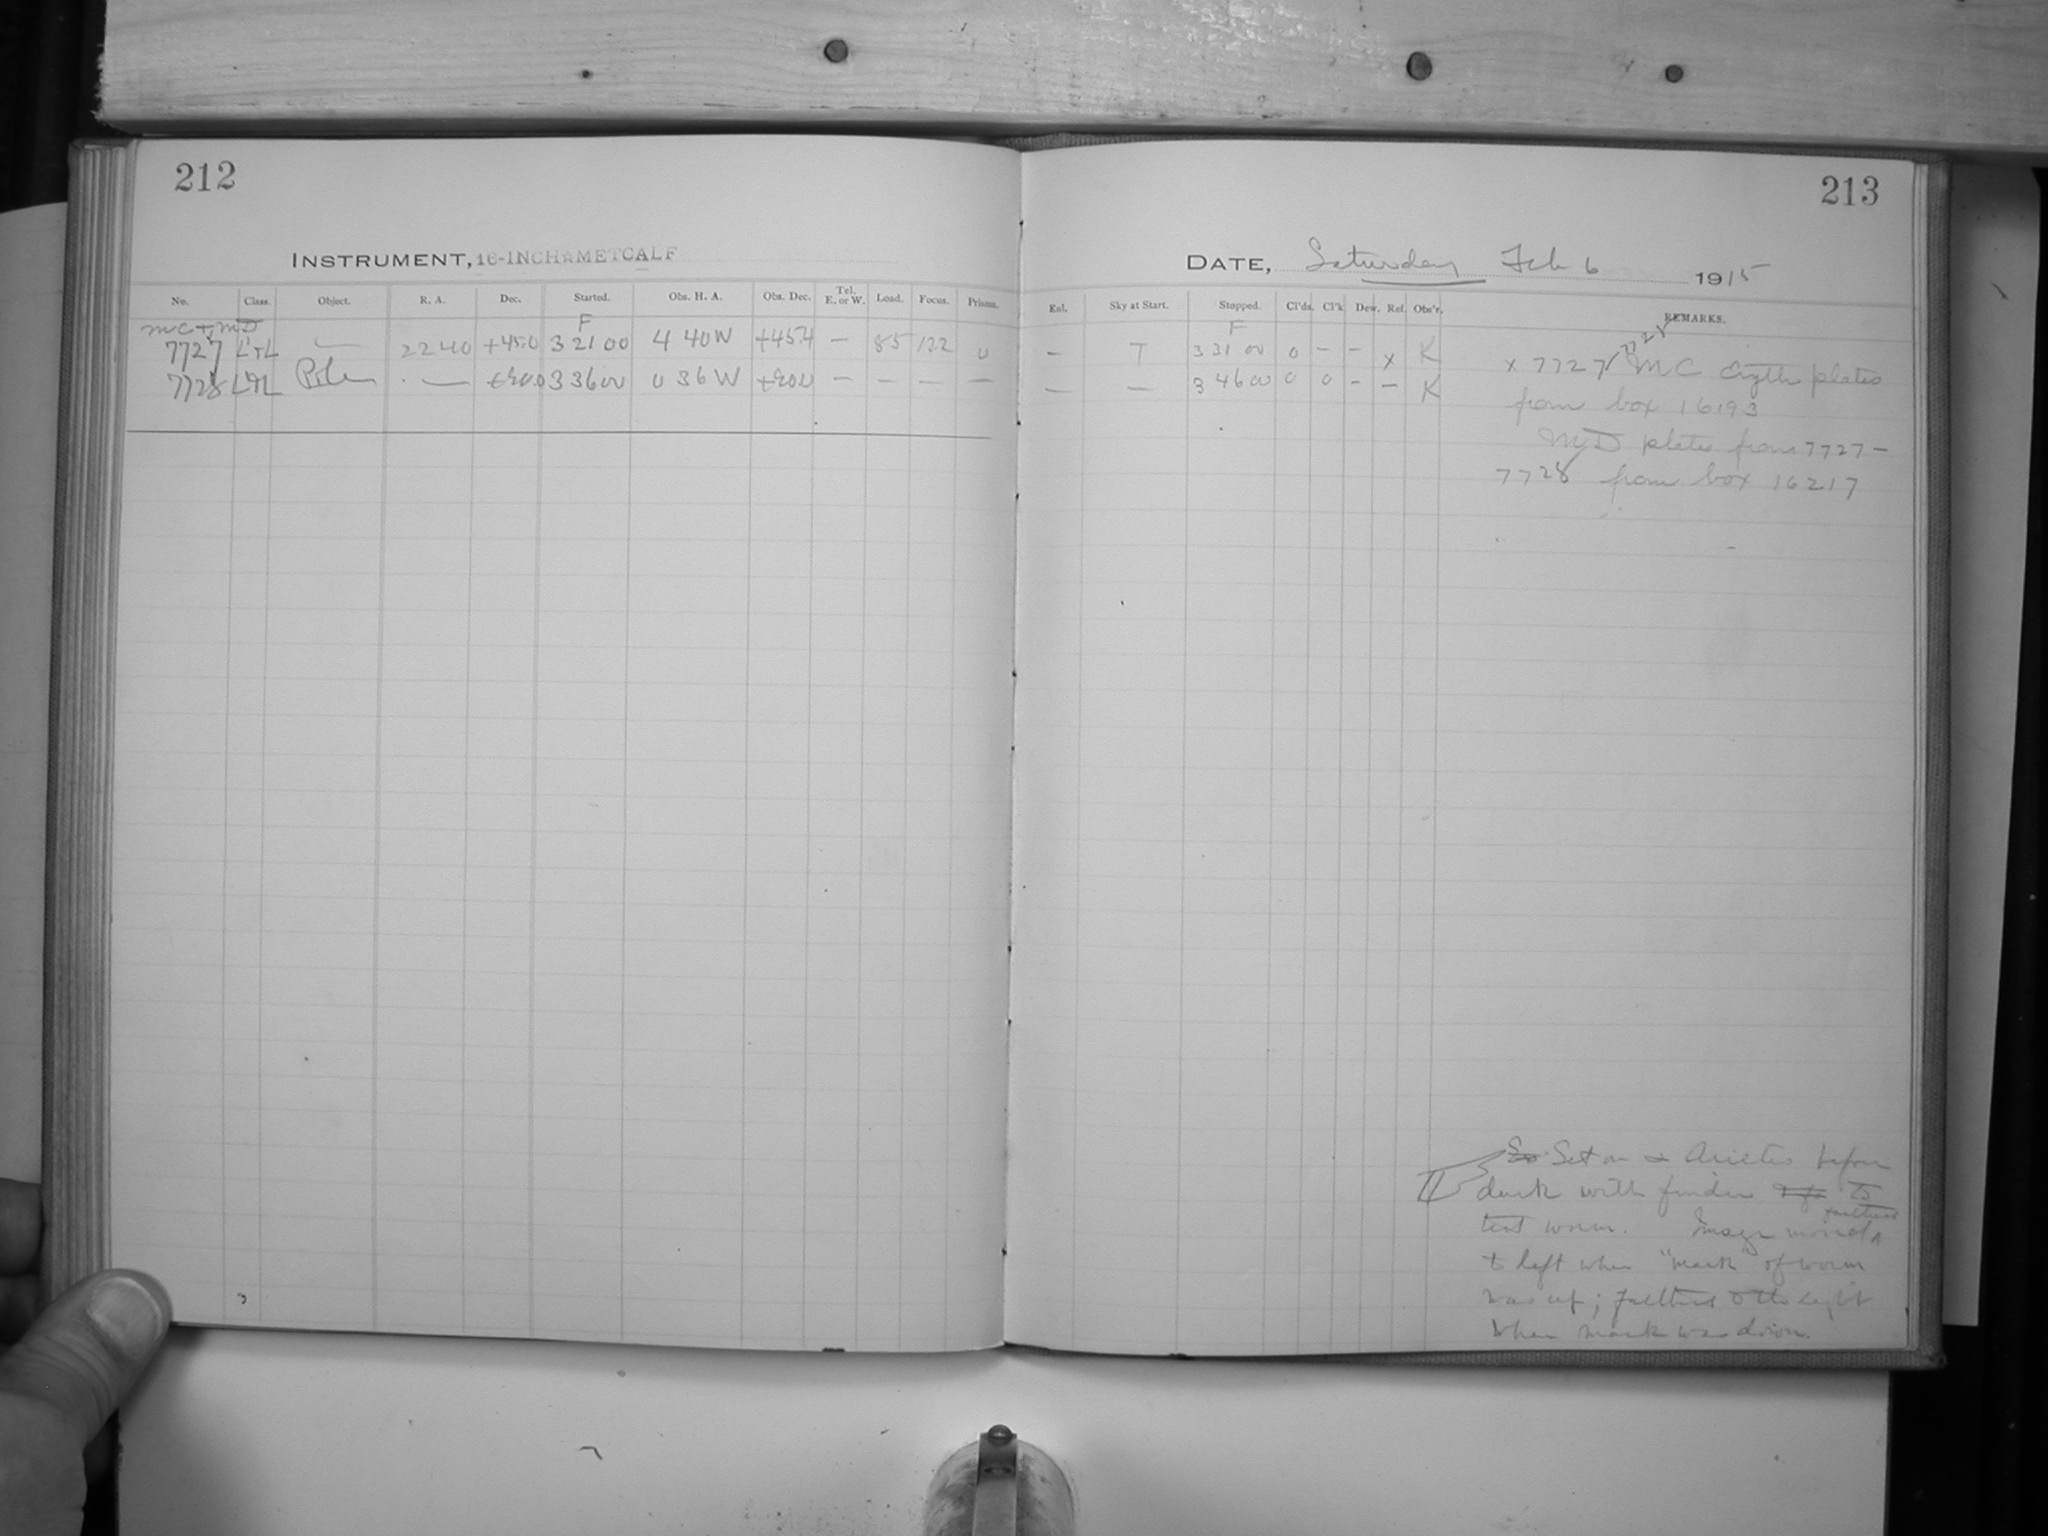 212
INSTRUMENT, 16-INCH METCALF
No. Class. Object. R. A. Dec. Started. Obs. H. A. Obs. Dec. Tel. E. or W. Load. Focus. Prisms.
MC + MD F
7727 L+L — 22 40 +45.0 3 21 00 4 40 W +45.4 — 85 122 0
7728 L+L Pole — +90.0 3 36 00 0 36 W +90.0 — — — —
213
DATE, Saturday Feb 6 1915
Enl. Sky at Start. Stopped. Cl'ds. Cl'k Dew. Ref. Obs'r. REMARKS.
F
— T 3 31 00 0 — — x K
— — 3 46 00 0 0 — — K
7728
x 7727 MC Eryth plates
from box 16193
MD plates from 7727 –
7728 from box 16217
Set on α Arietis before
dark with finder to
test worm. Image moved farthest
to left when "mark" of worm
was up; farthest to the right
when mark was down.